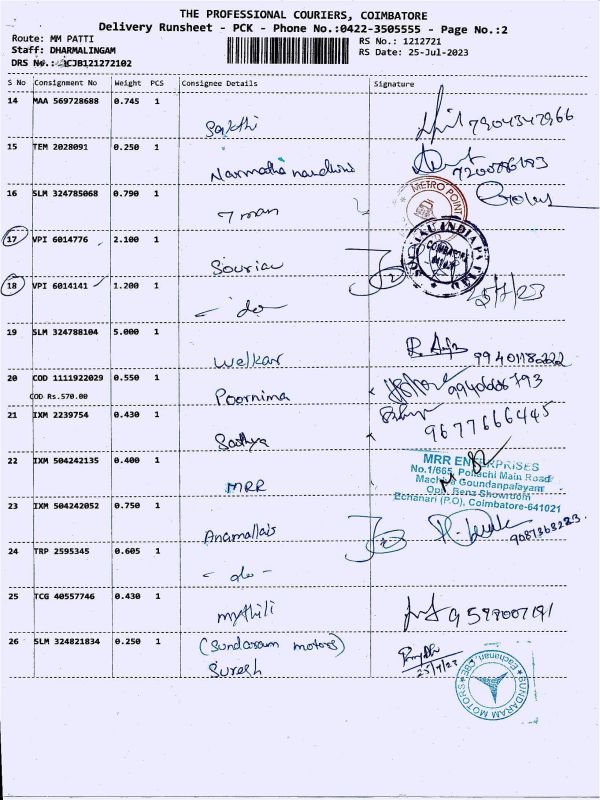 THE PROFESSIONAL COURIERS, COIMBATORE
Delivery Runsheet - PCK - Phone No.:0422-3505555 - Page No.:2
Route: MM PATTI
RS No.: 1212721
Staff: DHARMALINGAM
RS Date: 25-Jul-2023
DRS No.: CJB121272102
S No Consignment No Weight PCS Consignee Details Signature
14 MAA 569728688 0.745 1 Sakthi 7904342966
15 TEM 2028091 0.250 1 Narmatha
16 SLM 324785068 0.790 1
METRO POINT
17 VPI 6014776 2.100 1 Souriau
SOURIAU INDIA PVT LTD
18 VPI 6014141 1.200 1 - do - 25/7/23
19 SLM 324788104 5.000 1 Welkar 9940118222
20 COD 1111922029 0.550 1 Poornima 9940666793
COD Rs.570.00
21 IXM 2239754 0.430 1 Sathya 9677666445
22 IXM 504242135 0.400 1 MRR
MRR ENTERPRISES
No.1/665, Pollachi Main Road
Machina Goundanpalayam
Opp. Benz Showroom
Echanari (P.O), Coimbatore-641021
23 IXM 504242052 0.750 1 Anamallais 9087368223
24 TRP 2595345 0.605 1 - do -
25 TCG 40557746 0.430 1 mythili
26 SLM 324821834 0.250 1 (Sundaram motors)
Suresh 25/7/23
SUNDARAM MOTORS
Eachanari, CBE.